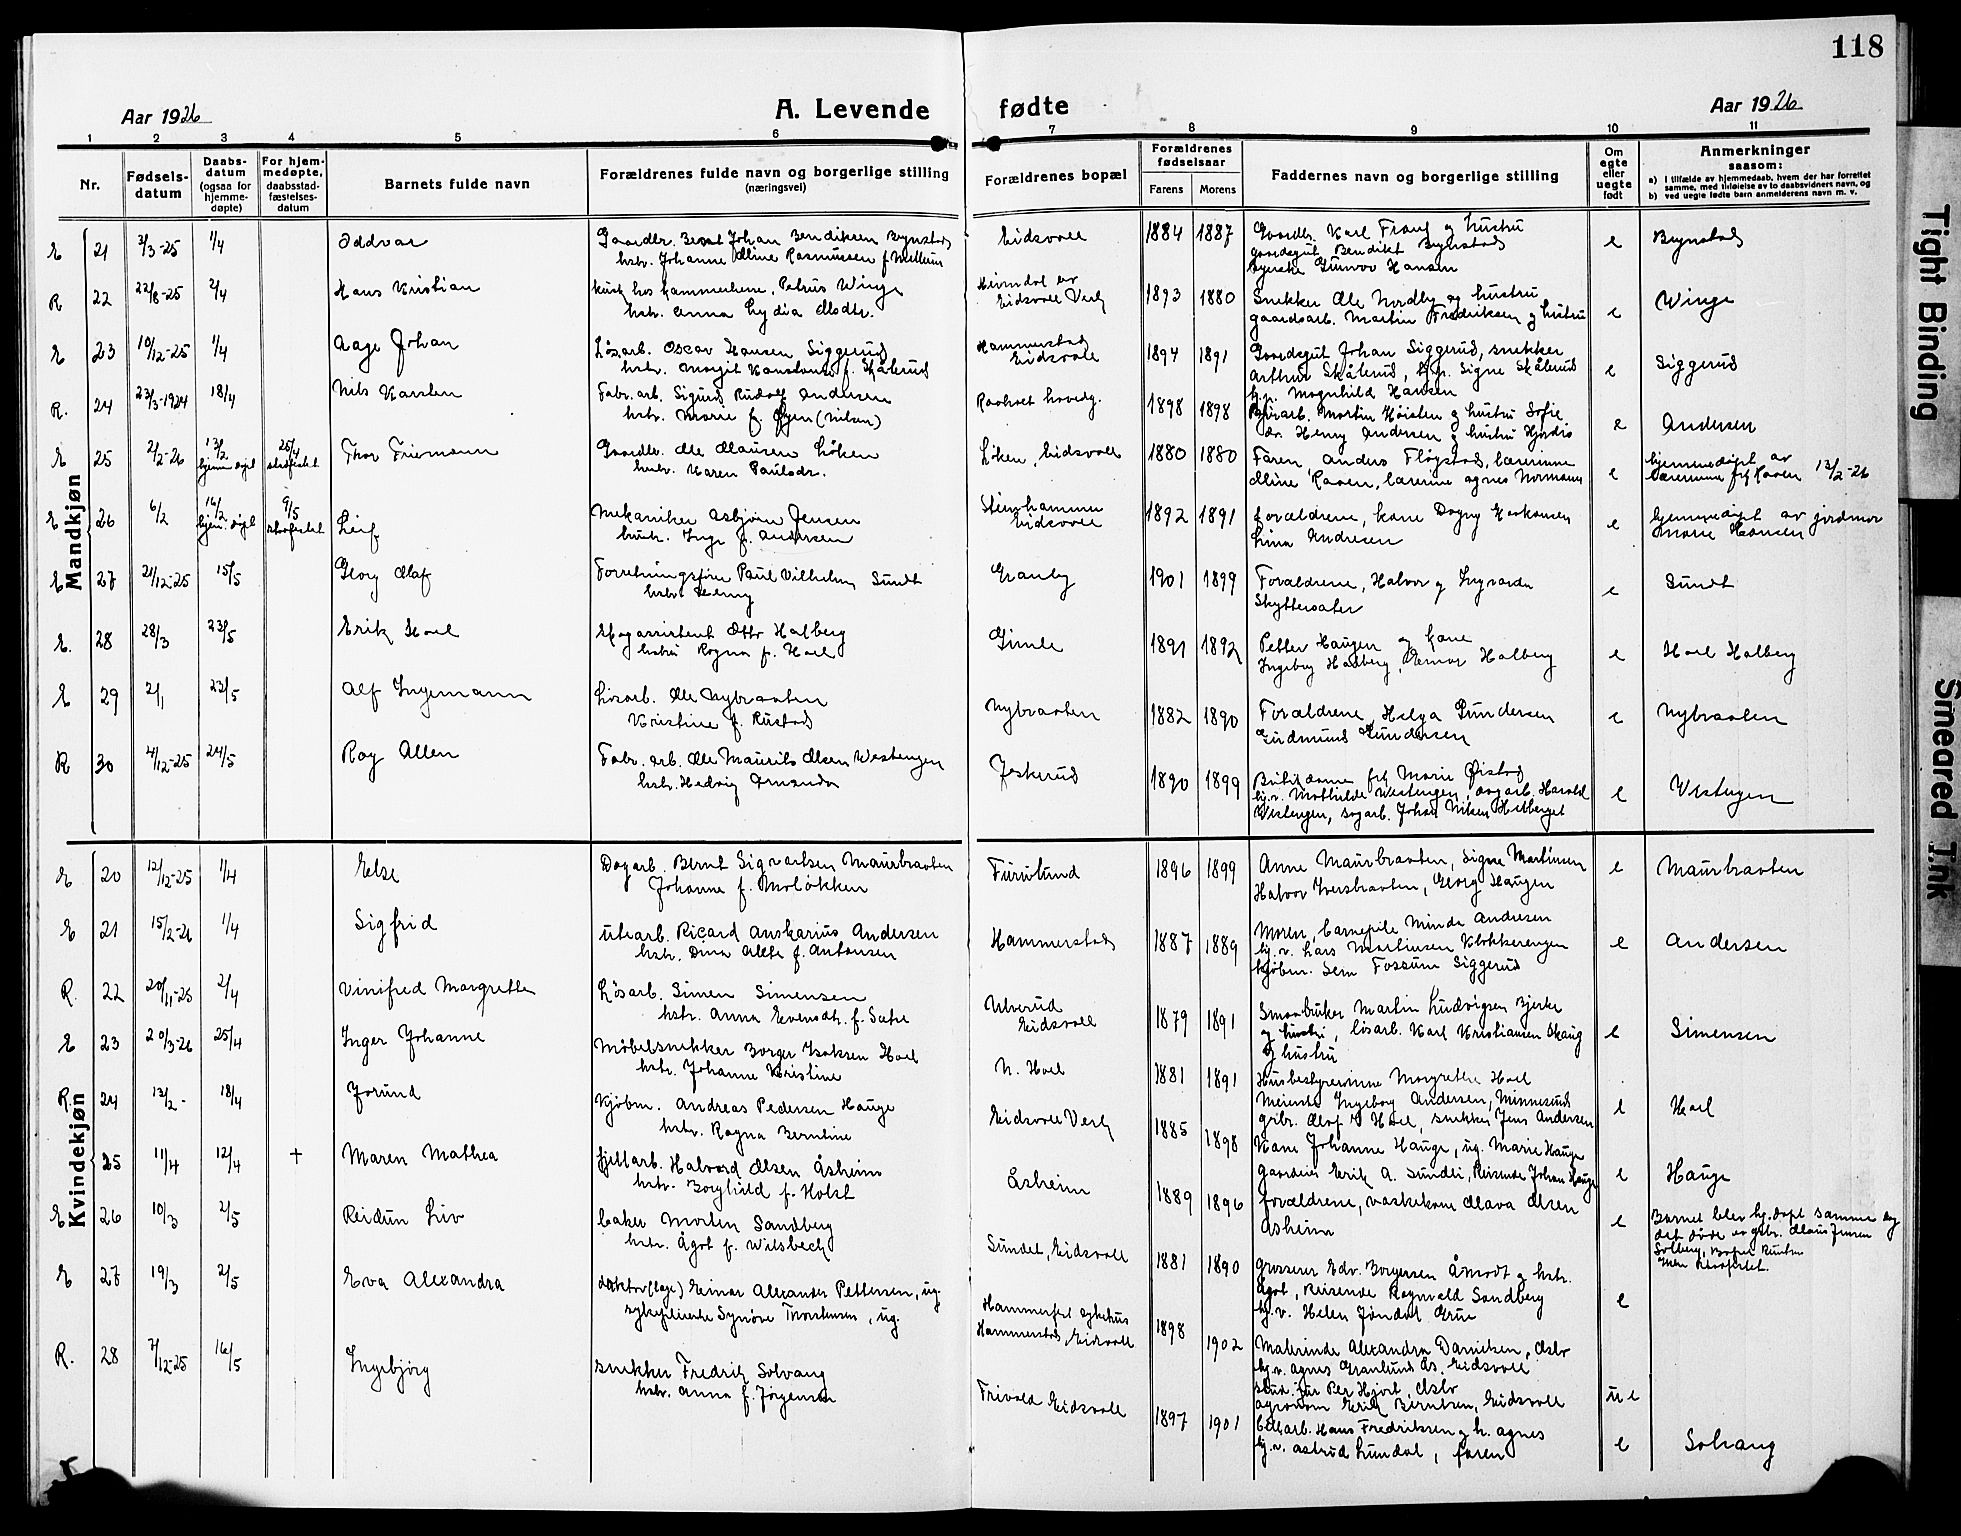 118
Aar 1926
A. Levende fødte
Aar 1926
1 2 3 4 5 6 7 8 9 10 11
Nr.
Fødsels-
datum
Daabs-
datum
(ogsaa for
hjemme-
døpte)
For hjem-
medøpte,
daabsstad-
fæstelses-
datum
Barnets fulde navn
Forældrenes fulde navn og borgerlige stilling
(næringsvei)
Forældrenes bopæl
Forældrenes
fødselsaar
Farens Morens
Faddernes navn og borgerlige stilling
Om
egte
eller
uegte
født
Anmerkninger
saasom:
a) I tilfælde av hjemmedaab, hvem der har forrettet
samme, med tilføielse av to daabsvidners navn, og
b) ved uegte fødte barn anmelderens navn m. v.
Mandkjøn
E 21 3/3-25 1/4 Oddvar
Gaardbr. Bernt Johan Bendiksen Bynstad
hstr. Johanne Oline Rasmussen f.
Eidsvoll 1884 1887
Gaardbr. Karl Frant og hustru
gaardsgut Bendikt Bynstad
syerske Gunvor Hansen
e Bynstad
R 22 22/8-25 2/4 Hans Kristian
Petrus Winge
hstr. Anna Lydia Olsdtr.
Eidsvoll Verk 1893 1880
Snekker Ole Nordby og hustru
gaardsarb. Martin Fredriksen og hustru
e Winge
E 23 10/12-25 1/4 Aage Johan
Løsarb. Oscar Hansen Siggerud
hstr. Margit Konstanse f. Skålerud
Hammerstad
Eidsvoll 1894 1891
Gaardsgut Johan Siggerud, snekker
Arthur Skålerud, tj.p. Signe Skålerud
tj.p. Magnhild Hansen
e Siggerud
R. 24 23/3-1924 18/4 Nils Karsten
Fabr. arb. Sigurd Rudolf Andersen
hstr. Marie f. Øyen (Nilsen)
Raaholt 1898 1898
Martin Høisten og hustru Sofie
Henry Andersen og hustru Hjørdis
e Andersen
E 25 2/2-26 13/2 hjemmedøpt 25/4 stadfestet Thor Friemann
Gaardbr. Ole Olausen Løken
hustr. Karen Paulsdr.
Løken, Eidsvoll 1880 1880
Faren, Anders Fløgstad, lærerinne
Oline Raven, lærerinne Agnes Normann
e hjemmedøpt av
lærerinne frk Raven 13/2-26
E 26 6/2 16/2 hjem. døpt 9/5 stadfestet Leif
Mekaniker Asbjørn Jensen
hustr. Inga f. Andersen
Steinhammer
Eidsvoll 1892 1891
Forældrene, kone Dagny Haakonsen
Lina Andresen
e hjemmedøpt av jordmor
Marie Hansen
E 27 21/12-25 15/5 Georg Olaf
Forretningsfører Paul Vilhelm Sundt
hstr. Henny
Granly 1901 1899
Forældrene, Halvor og Ingvarda
Skyttersæter
e Sundt
E. 28 28/3 23/5 Erik Hoel
Otto Halberg
hustru Ragna f. Hoel
Gimle 1891 1892
Petter Haugen og kone
Ingeborg Halberg, Halberg
e Hoel Halberg
E 29 2/1 23/5 Alf Ingemann
Løsarb. Ole Nybraaten
Kristine f. Rustad
Nybraaten 1882 1890
Forældrene, Helga Gundersen
Gudmund Gundersen
e Nybraaten
R 30 4/12-25 24/5 Roy Allen
Fabr. arb. Ole Maurits Olsen Westengen
hstr. Hedvig Amanda
Jeskerud 1890 1899
Butikdame frk Marie Øistad
hj.v. Mathilde Westengen, sagarb. Harald
Westengen, sagarb. Johan
e Westengen
Kvindekjøn
E 20 12/12-25 1/4 Else
Dagarb. Bernt Sigvartsen Maurbraaten
Johanne f. Moløkken
Furulund 1896 1899
Anne Maurbraaten, Signe Martinsen
Halvor Iversbraaten, Georg Haugen
e Maurbraaten
E 21 15/2-26 1/4 Sigfrid
Ricard Anskarius Andersen
hstr. Dina Alette f. Antonsen
Hammerstad 1887 1889
Moren, barnepike Minda Andresen
hj.v. Lars Martinsen Klokkerengen
kjøbm. Sem Fossum Siggerud
e Andersen
R. 22 20/11-25 2/4 Vinifred Margrethe
Løsarb. Simen Simensen
hstr. Anna Evensdtr. f. Sætre
Ulverud
Eidsvoll 1879 1891
Smaabruker Martin Ludvigsen Bjerke
og hustru, løsarb. Karl Kristiansen Skaug
og hustru
e Simensen
E 23 20/3-26 25/4 Inger Johanne
Møbelsnekker Borger Isaksen Hoel
hstr. Johanne Kristine
N. Hoel 1881 1891
Husbestyrerinne Margrethe Hoel
Meierske Ingeborg Andersen, Minnesund
grbr. Olaf Hoel, snekker Jens Andersen
e Hoel
R. 24 13/2- 18/4 Jorund
Kjøbm. Andreas Pedersen Hauge
hstr. Ragna Berntine
Eidsvoll Verk 1885 1898
Kone Johanne Hauge, ug. Marie Hauge
gaardeier Erik A. Sundli, Reisende Johan Hauge
e Hauge
25 11/4 12/4 + Maren Mathea
Fjellarb. Halvard Olsen Åsheim
hstr. Borghild f. Holst
Åsheim 1889 1896
Forældrene, vaskekone Olava Olsen
Åsheim
e Barnet blev hj.døpt samme dag
det døde av gbr. Olaus Jensen
Solberg,
E 26 10/3 2/5 Reidun Liv
baker Morten Sandberg
hstr. Ågot f. Wilsbech
Sundet, Eidsvoll 1881 1890
Grosserer Edv. Borgersen Åmodt og hstr.
Ågot, Reisende Ragnvald Sandberg
hj.v. Helen Jøndal Grue
e
E 27 19/3 2/5 Eva Alexandra
doktor (læge) Einar Alexander Pettersen, ug.
sykepleierske Synøve Thorstensen, ug.
Hammerfest sykehus
Hammerstad, Eidsvoll 1898 1902
Malerinde Alexandra Danielsen, Oslo
hj.v. Agnes Granlund Ås, Eidsvoll
stud. jur Per Hjort, Oslo
agronom Erik Berntsen, Eidsvoll
u e
R. 28 7/12-25 16/5 Ingebjørg
snekker Fredrik Solvang
hstr. Anna f. Jørgensen
Frivold Eidsvoll 1897 1901
Hans Fredriksen og h. Agnes
hj.v. Astrid Lundal, faren
e Solvang
Tight Binding
Smeared Ink